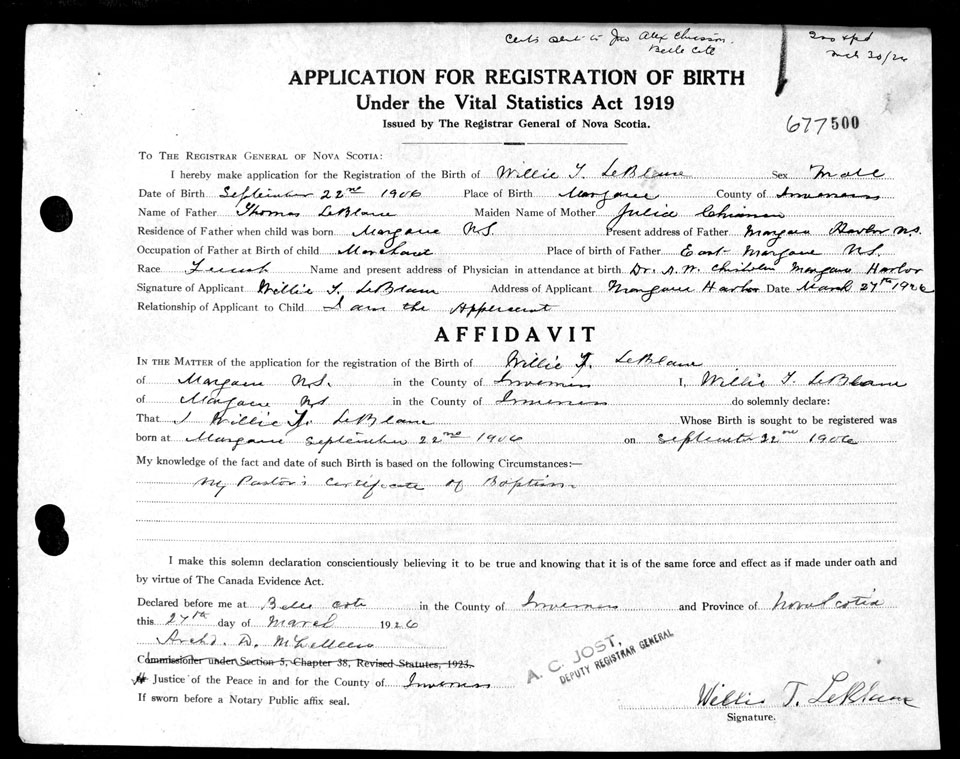 Certs sent to Jno Alex Chiasson.
Belle Cote
Mch 30/26
APPLICATION FOR REGISTRATION OF BIRTH
Under the Vital Statistics Act 1919
Issued by The Registrar General of Nova Scotia.
677500
TO THE REGISTRAR GENERAL OF NOVA SCOTIA:
I hereby make application for the Registration of the Birth of Willie T. LeBlanc Sex Male
Date of Birth September 22nd 1906 Place of Birth Margaree County of Inverness
Name of Father Thomas LeBlanc Maiden Name of Mother Julia
Residence of Father when child was born Margaree N.S. Present address of Father Margaree Harbor N.S.
Occupation of Father at Birth of child Merchant Place of birth of Father East Margaree N.S.
Race French Name and present address of Physician in attendance at birth Dr. A. W. Chisholm Margaree Harbor
Signature of Applicant Willie T. LeBlanc Address of Applicant Margaree Harbor Date March 27th 1926
Relationship of Applicant to Child I am the
AFFIDAVIT
IN THE MATTER of the application for the registration of the Birth of Willie T. LeBlanc
of Margaree N.S. in the County of Inverness I, Willie T. LeBlanc
of Margaree N.S. in the County of Inverness do solemnly declare:
That I Willie T. LeBlanc Whose Birth is sought to be registered was
born at Margaree September 22nd 1906 on September 22nd 1906
My knowledge of the fact and date of such Birth is based on the following Circumstances:—
My Pastor's Certificate of Baptism
I make this solemn declaration conscientiously believing it to be true and knowing that it is of the same force and effect as if made under oath and
by virtue of The Canada Evidence Act.
Declared before me at Belle Cote in the County of Inverness and Province of Nova Scotia
this 27th day of March 1926
Archd. D. McLellan
Commissioner under Section 5, Chapter 38, Revised Statutes, 1923.
A Justice of the Peace in and for the County of Inverness
If sworn before a Notary Public affix seal.
A. C. JOST,
DEPUTY REGISTRAR GENERAL
Willie T. LeBlanc
Signature.